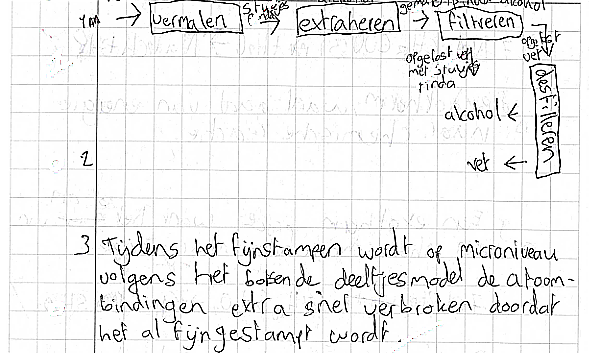 vermalen
stukjes
extraheren
alcohol
filtreren
opgelost
vet
opgelost vet
met stukjes
pinda
destilleren
alcohol
vet
2
3 Tijdens het fijnstampen wordt op microniveau
volgens het botsende deeltjesmodel de atoom-
bindingen extra snel verbroken doordat
het al fijngestampt wordt.